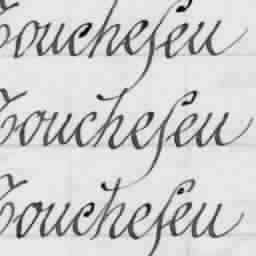 Toucheſeu
Toucheſeu
Toucheſeu